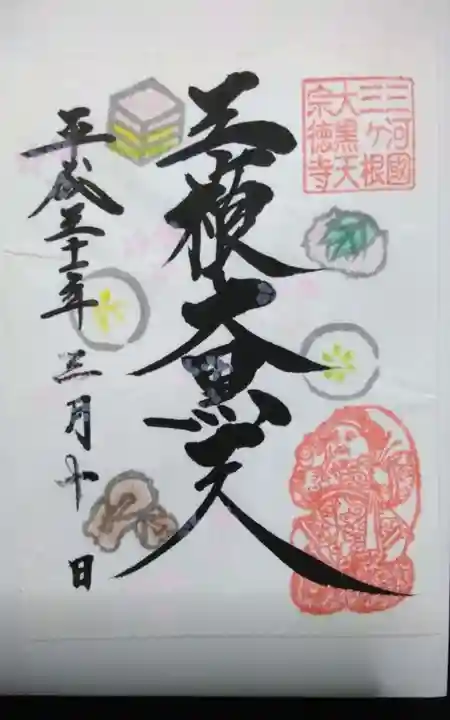 三河國
三ヶ根
大黒天
宗徳寺
三ヶ根大黒天
平成三十一年三月十日